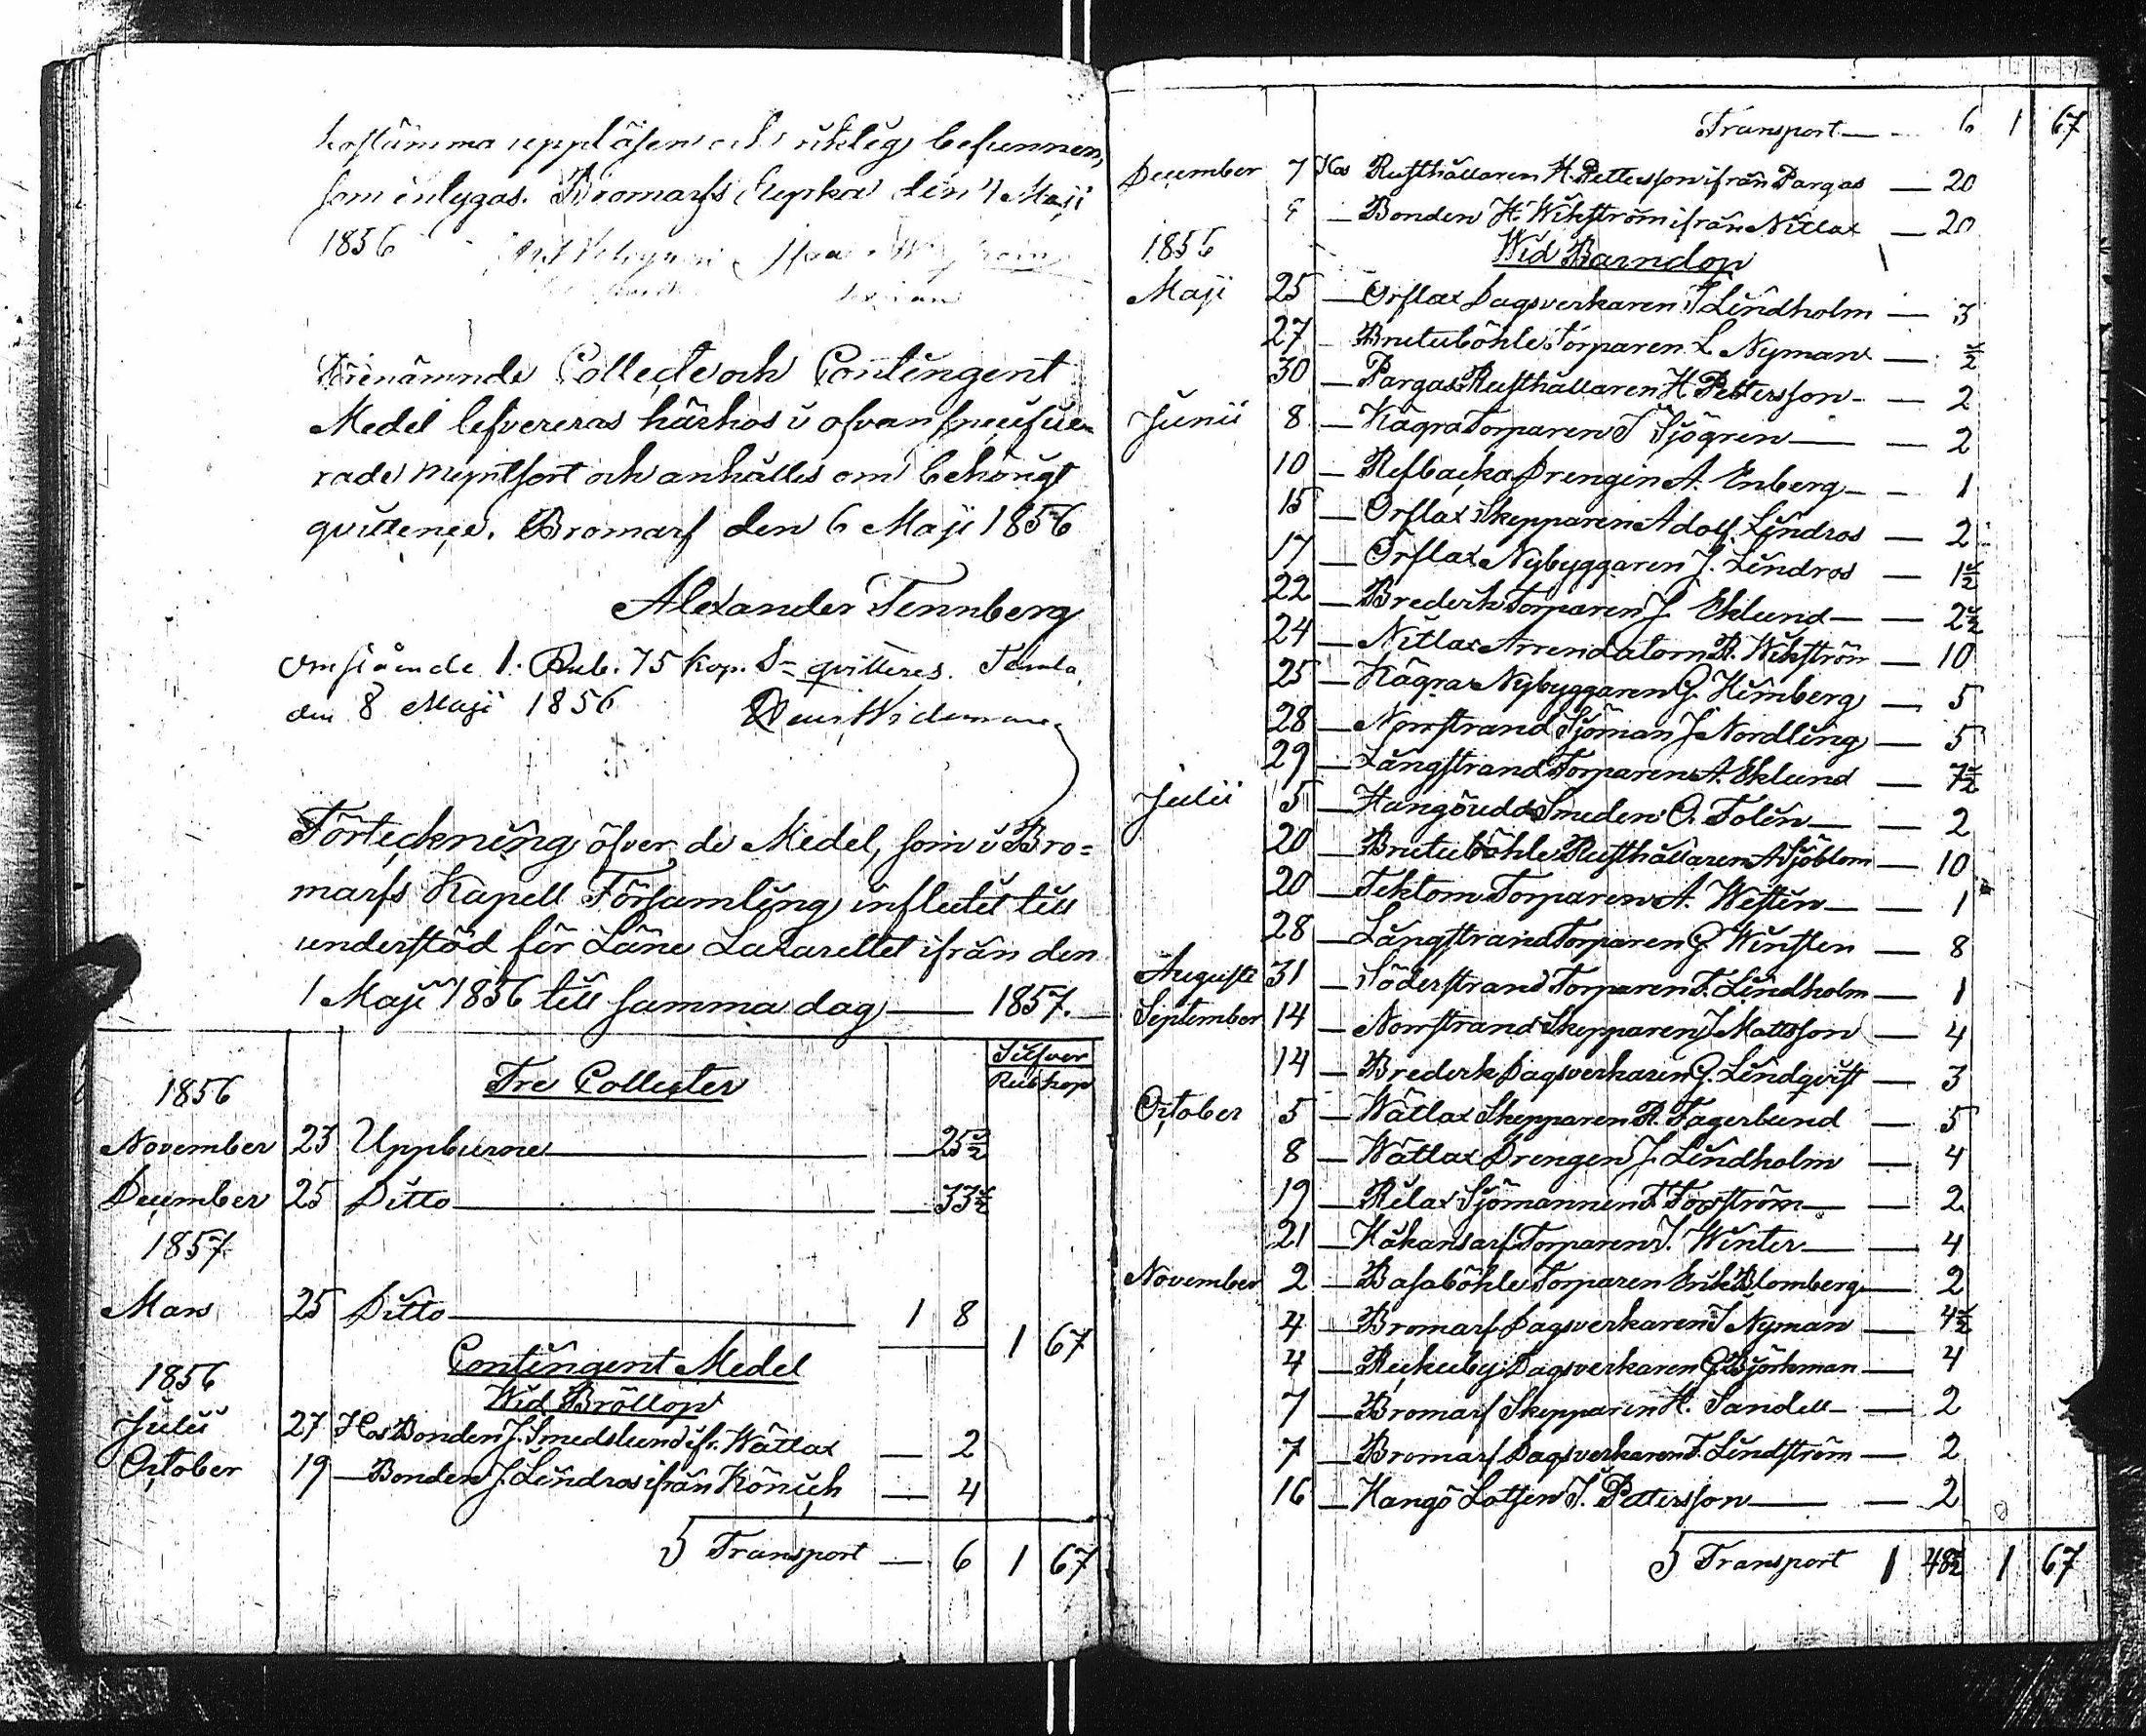 kostämma uppläsen och riktig befunnen,
som intygas. Bromarfs Kyrka den 4 Maji
1856
Förenämnde Collecte och Contingent
Medel lefvereras härhos i ofvan specifice-
rade myntsort och anhålles om behörigt
qvittence. Bromarf den 6 Maji 1856
Alexander Tennberg
Omstående 1. Rub. 75 kop. S= qvitteres.
den 8 Maji 1856
Förteckning öfver de Medel, som i Bro=
marfs Kapell Församling influtit till
understöd för Läne Lazarettet ifrån den
1 Maji 1856 till samma dag — 1857.
Silfver
Rub kop
1856 Tre Collecter
November 23 Uppburne — 25½
December 25 Ditto — 33½
1857
Mars 25 Ditto — 1 8
1 67
Contingent Medel
1856 Wid Bröllop
Julii 27 Hos Bonden J. Smedslund ifr. Wättlax — 2
October 19 — Bonden J. Lindros ifrån Könick — 4
Transport — 6 1 67
Transport — 6 1 67
December 7 Hos Rusthållaren H. Pettersson ifrån Pargas — 20
— Bonden H. Wikström ifrån Nitlax — 20
1856 Wid Barndop
Maji 25 — Örflax Dagsverkaren Lindholm — 3
27 — Brutuböhle Torparen L Nyman — ½
30 — Pargas Rusthållaren H. Pettersson — 2
Junii 8 — Kägra Torparen J Sjögren — 2
10 — Refbacka Drengin A. Enberg — 1
15 — Örflax Skepparen Adolf Lindros — 2
17 — Örflax Nybyggaren J. Lindros — 1½
22 — Brederk Torparen J Eklund — 2½
24 — Nitlax Arrendatorn R. Wikström — 10
25 — Kägra Nybyggaren G. Himberg — 5
28 — Norrstrand Sjöman J Nordling — 5
29 — Långstrand Torparen A. Eklund — 7½
Julii 5 — Hangöudd Smeden O. Tolin — 2
20 — Brutuböhle Rusthållaren A Sjöblom — 10
20 — Tektom Torparen A. Westin — 1
28 — Långstrand Torparen G. Winsten — 8
Augusti 31 — Söderstrand Torparen F. Lindholm — 1
September 14 — Norrstrand Skepparen J Mattsson — 4
14 — Brederk Dagsverkaren G. Lindqvist — 3
October 5 — Wättlax Skepparen R. Fagerlund — 5
8 — Wättlax Drengen J. Lindholm — 4
19 — Rilax Sjömannen F Forström — 2
21 — Håkansarf Torparen J. Winter — 4
November 2 — Basaböhle Torparen Erik Blomberg — 2
4 — Bromarf Dagsverkaren J Nyman — 4½
4 — Reckuby Dagsverkaren G Björkman — 4
7 — Bromarf Skepparen H. Sandell — 2
7 — Bromarf Dagsverkaren F. Lindström — 2
16 — Hangö Lotsen J. Pettersson — 2
Transport 1 48½ 1 67